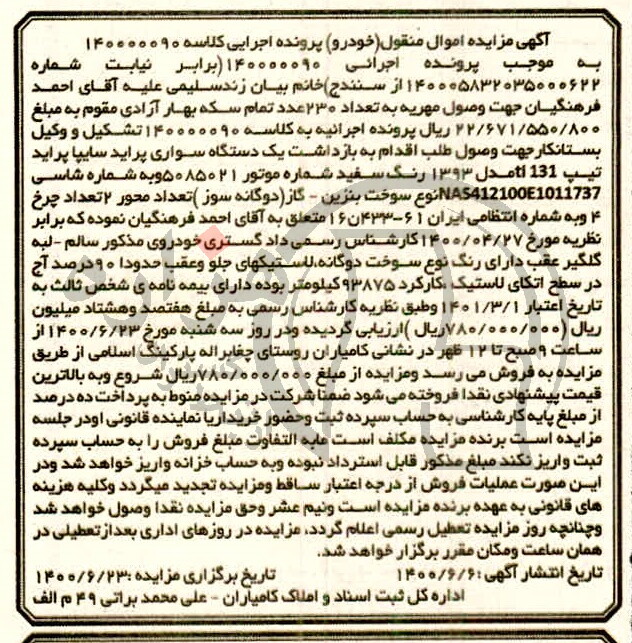 آگهی مزایده اموال منقول(خودرو) پرونده اجرایی کلاسه ۱۴۰۰۰۰۰۹۰
به موجب پرونده اجرائی ۱۴۰۰۰۰۰۹۰(برابر نیابت شماره
۱۴۰۰۰۵۸۳۲۰۳۵۰۰۰۶۲۲از سنندج)خانم بیان زندسلیمی علیه آقای احمد
فرهنگیان جهت وصول مهریه به تعداد ۲۳۰عدد تمام سکه بهار آزادی مقوم به مبلغ
۲۲/۶۷۱/۵۵۰/۸۰۰ ریال پرونده اجرائیه به کلاسه ۱۴۰۰۰۰۰۹۰تشکیل و وکیل
بستانکارجهت وصول طلب اقدام به بازداشت یک دستگاه سواری پراید سایپا پراید
تیپ tl 131مدل ۱۳۹۳ رنگ سفید شماره موتور ۵۰۸۵۰۲۱وبه شماره شاسی
NAS412100E1011737نوع سوخت بنزین - گاز(دوگانه سوز )تعداد محور ۲تعداد چرخ
۴ وبه شماره انتظامی ایران ۶۱-۴۳۳ن۱۶متعلق به آقای احمد فرهنگیان نموده که برابر
نظریه مورخ ۱۴۰۰/۰۴/۲۷کارشناس رسمی داد گستری خودروی مذکور سالم - لبه
گلگیر عقب دارای رنگ نوع سوخت دوگانه،لاستیکهای جلو وعقب حدودا ۹۰درصد آج
در سطح اتکای لاستیک ،کارکرد ۹۳۸۷۵کیلومتر بوده دارای بیمه نامه ی شخص ثالث به
تاریخ اعتبار ۱۴۰۱/۳/۱ وطبق نظریه کارشناس رسمی به مبلغ هفتصد وهشتاد میلیون
ریال (۷۸۰/۰۰۰/۰۰۰ریال )ارزیابی گردیده ودر روز سه شنبه مورخ ۱۴۰۰/۶/۲۳ از
ساعت ۹صبح تا ۱۲ ظهر در نشانی کامیاران روستای چغابراله پارکینگ اسلامی از طریق
مزایده به فروش می رسد ومزایده از مبلغ ۷۸۰/۰۰۰/۰۰۰ریال شروع وبه بالاترین
قیمت پیشنهادی نقدا فروخته می شود ضمنا شرکت در مزایده منوط به پرداخت ده درصد
از مبلغ پایه کارشناسی به حساب سپرده ثبت وحضور خریداریا نماینده قانونی اودر جلسه
مزایده است برنده مزایده مکلف است مابه التفاوت مبلغ فروش را به حساب سپرده
ثبت واریز نکند مبلغ مذکور قابل استرداد نبوده وبه حساب خزانه واریز خواهد شد ودر
این صورت عملیات فروش از درجه اعتبار ساقط ومزایده تجدید میگردد وکلیه هزینه
های قانونی به عهده برنده مزایده است ونیم عشر وحق مزایده نقدا وصول خواهد شد
وچنانچه روز مزایده تعطیل رسمی اعلام گردد، مزایده در روزهای اداری بعدازتعطیلی در
همان ساعت ومکان مقرر برگزار خواهد شد.
تاریخ انتشار آگهی :۱۴۰۰/۶/۶ تاریخ برگزاری مزایده :۱۴۰۰/۶/۲۳
اداره کل ثبت اسناد و املاک کامیاران - علی محمد براتی ۴۹ م الف